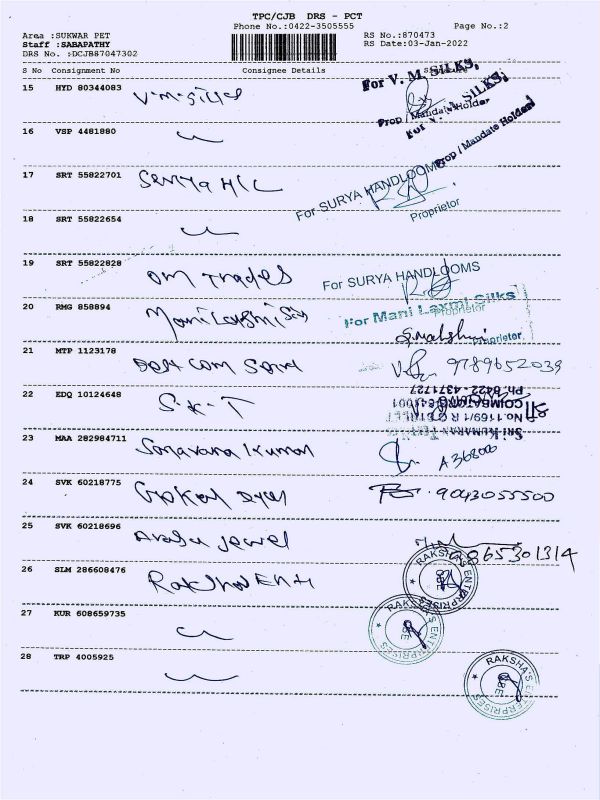 TPC/CJB DRS - PCT
Phone No.:0422-3505555 Page No.:2
Area :SUKWAR PET RS No.:870473
Staff :SABAPATHY RS Date:03-Jan-2022
DRS No. :DCJB87047302
S No Consignment No Consignee Details
For V. M. SILKS,
15 HYD 80344083 V.M.Silks
Prop / Mandate Holder
For V. M. SILKS,
16 VSP 4481880
Prop / Mandate Holder
17 SRT 55822701 Surya H/L
For SURYA HANDLOOMS
Proprietor
18 SRT 55822654
19 SRT 55822828 Om Trades
For SURYA HANDLOOMS
Proprietor
20 RMG 858894 Mani Laxshmi Silk
For Mani Laxmi Silks
Proprietor
21 MTP 1123178 9789652039
22 EDQ 10124648 S.K.T
Ph 0422-4371727
COIMBATORE-641001
No.1169/1 R G STREET
SRI KUMARAN
23 MAA 282984711 Saravana Kumar
A368000
24 SVK 60218775 9043055500
25 SVK 60218696 Jewel
9865301314
26 SLM 286608476 Raksha Ent
RAKSHA'S ENTERPRISES
CBE
27 KUR 608659735
RAKSHA'S ENTERPRISES
CBE
28 TRP 4005925
RAKSHA'S ENTERPRISES
CBE